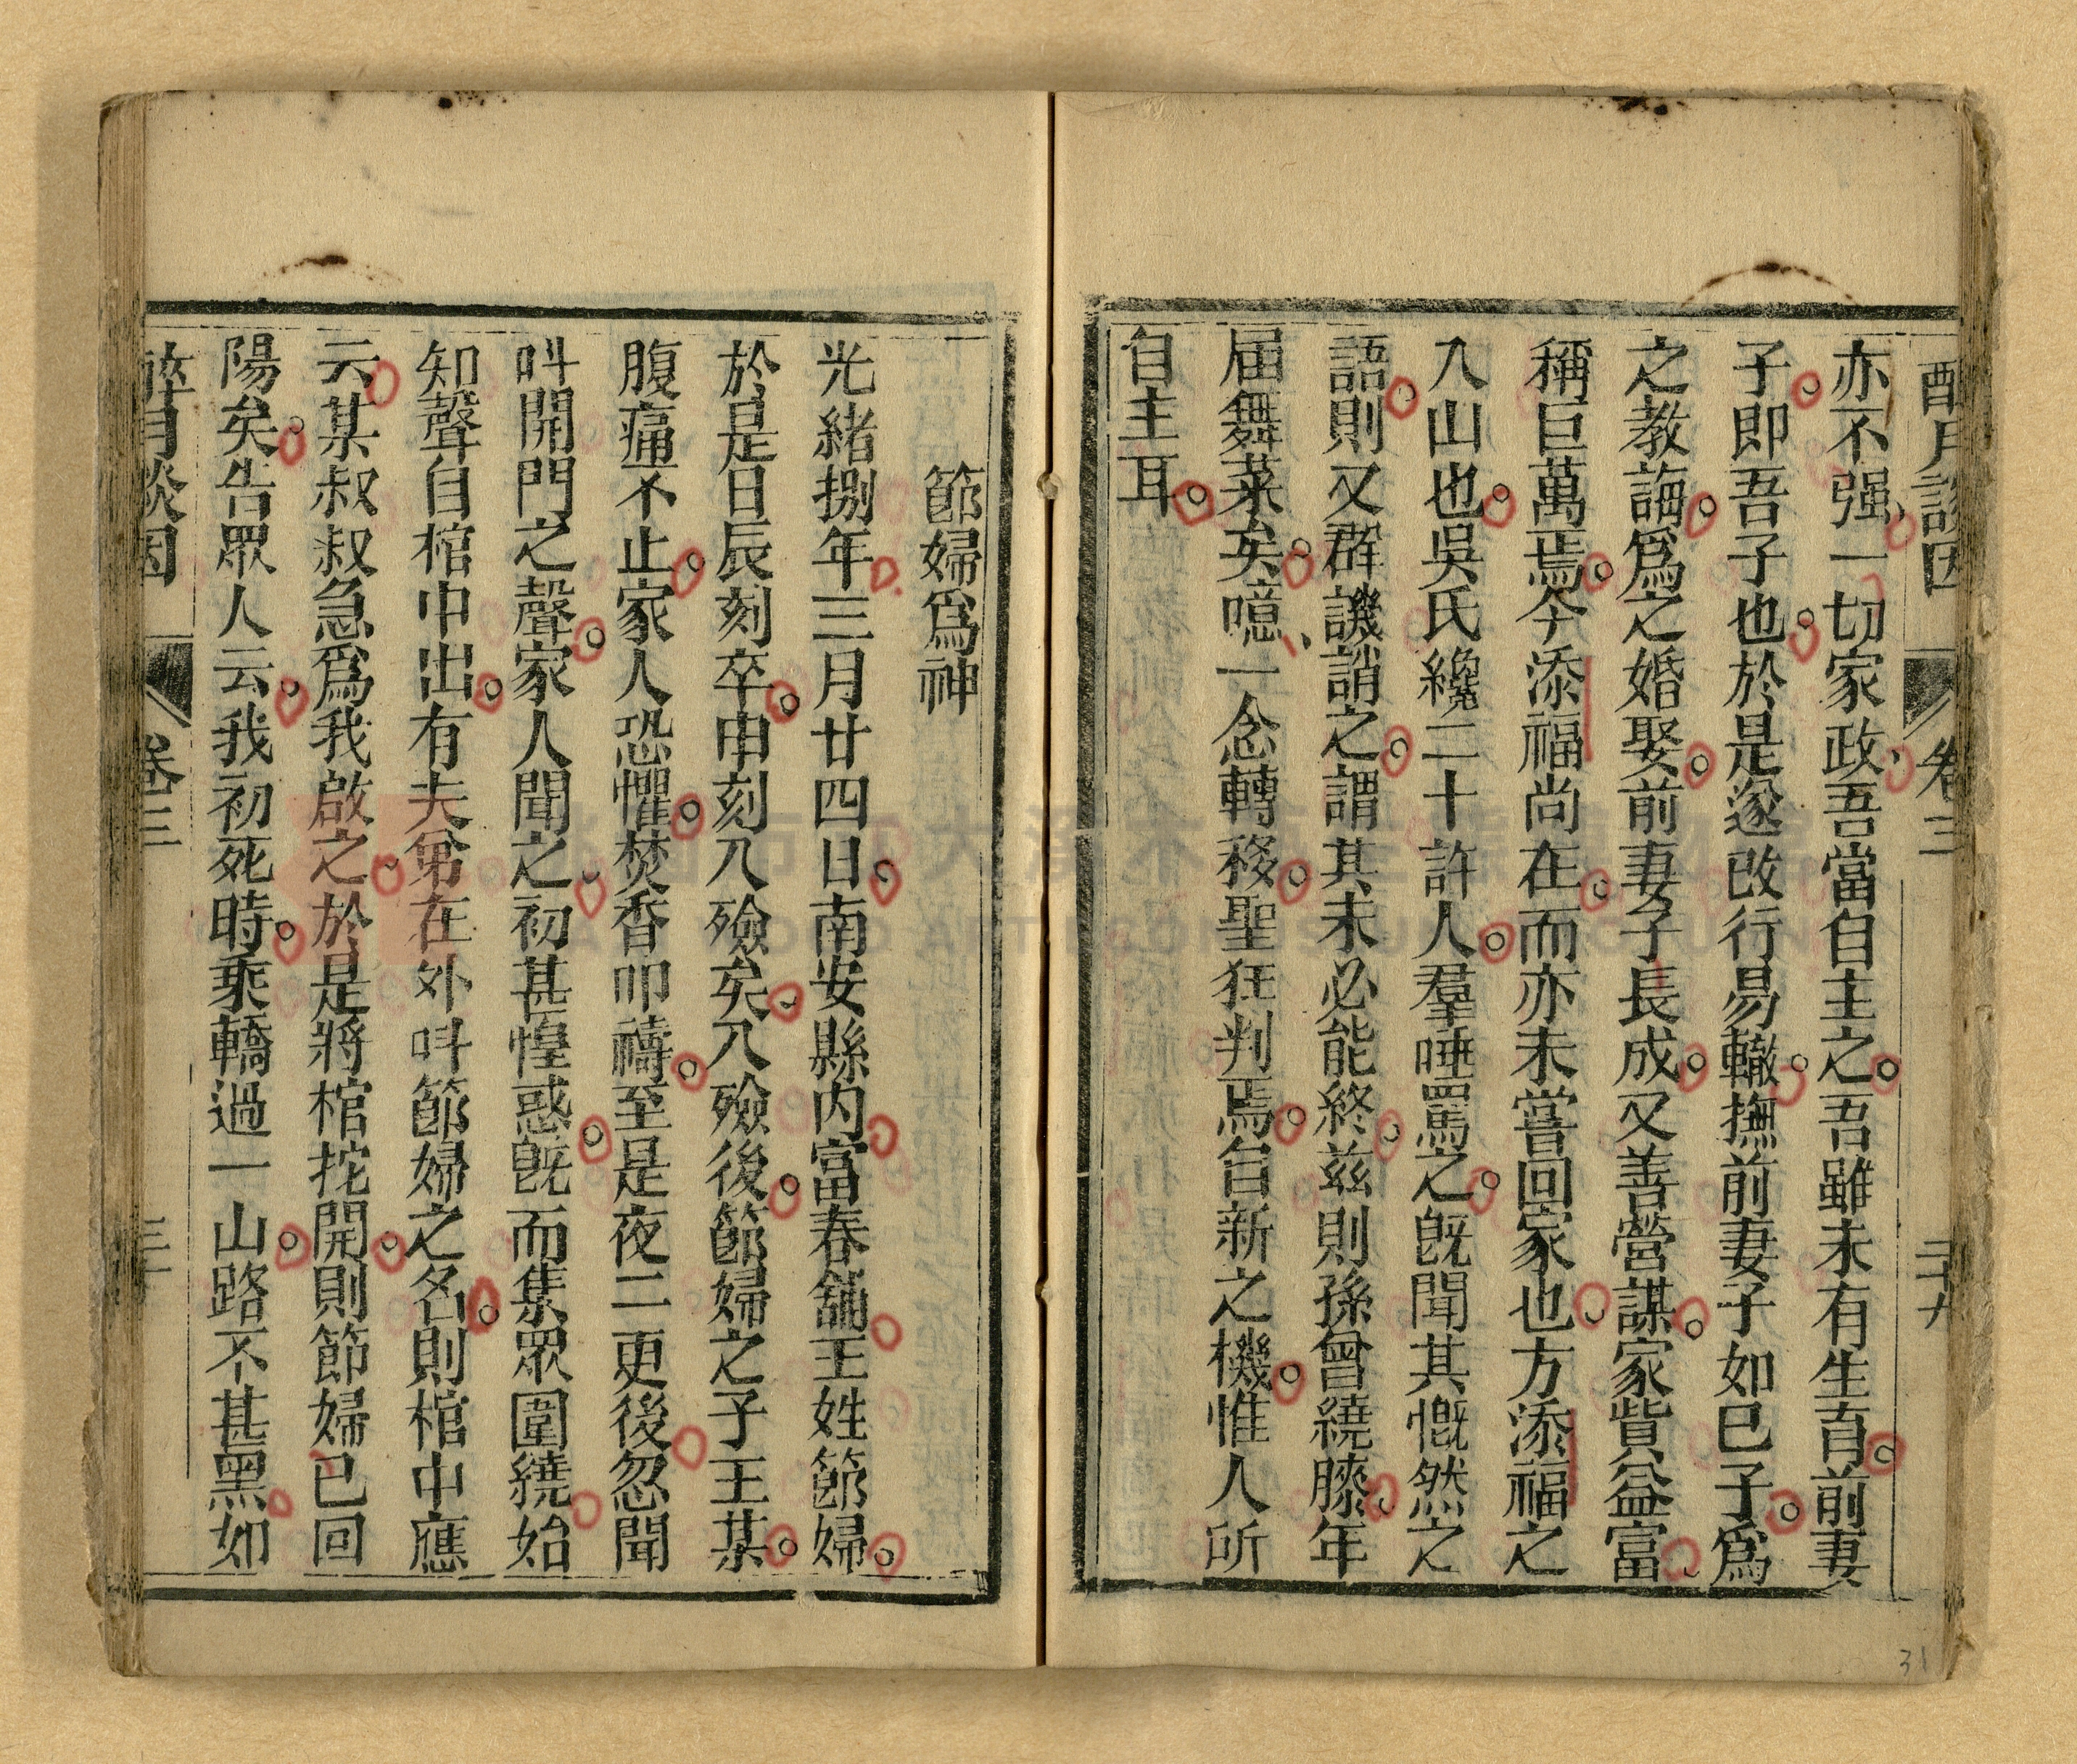 醉月談因 卷三 三十九
亦不强一切家政吾當自主之吾雖未有生育前妻
子即吾子也於是遂改行易轍撫前妻子如己子為
之教誨為之婚娶前妻子長成又善營謀家貲益富
稱巨萬焉今添福尚在而亦未嘗回家也方添福之
入山也吳氏纔二十許人羣唾罵之旣聞其慨然之
語則又群譏誚之謂其未必能終茲則孫曾繞膝年
届舞菜矣噫一念轉移聖狂判焉自新之機惟人所
自主耳
節婦為神
光緒捌年三月廿四日南安縣内富春舖王姓節婦
於是日辰刻卒申刻入殮矣入殮後節婦之子王某
腹痛不止家人恐懼焚香叩禱至是夜二更後忽聞
呌開門之聲家人聞之初甚惶惑旣而集眾圍繞始
知聲自棺中出有夫弟在外呌節婦之名則棺中應
云某叔叔急為我啟之於是將棺挖開則節婦已回
陽矣告眾人云我初死時乘轎過一山路不甚黑如
醉月談因 卷三 三十
31